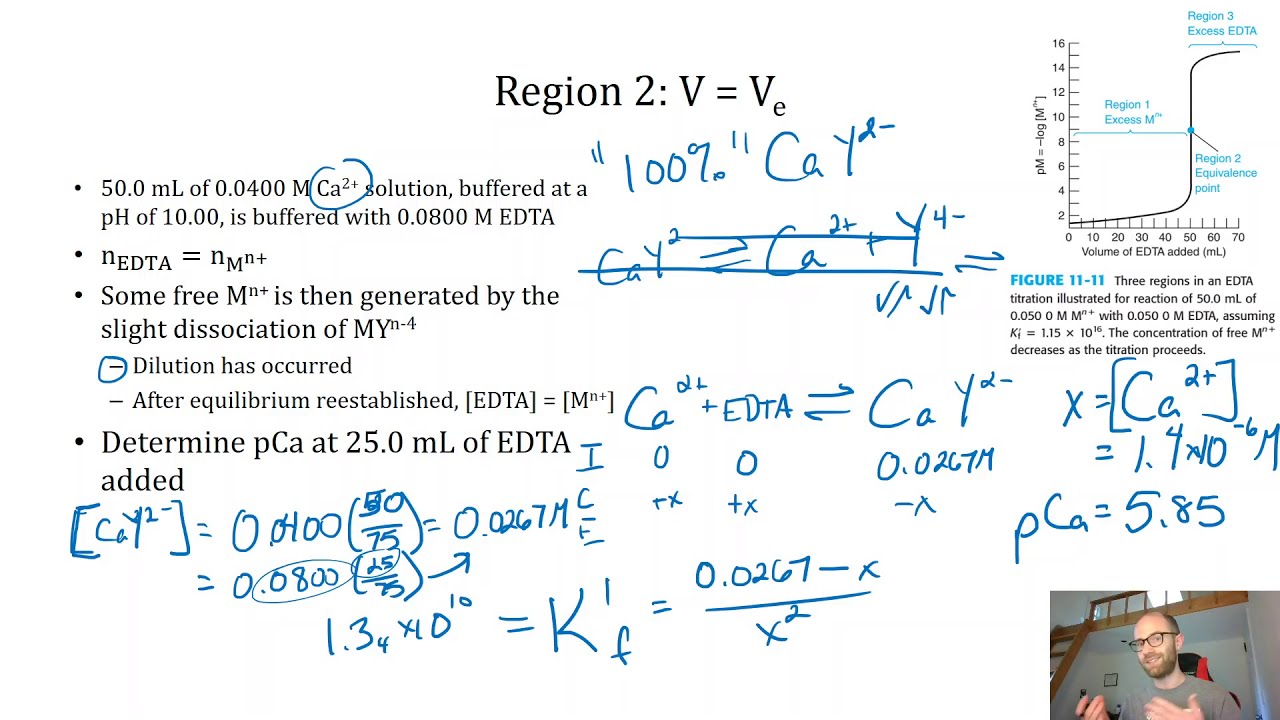 Region 2: V = Ve
• 50.0 mL of 0.0400 M Ca²⁺ solution, buffered at a
pH of 10.00, is buffered with 0.0800 M EDTA
• nEDTA = nMⁿ⁺
• Some free Mⁿ⁺ is then generated by the
slight dissociation of MYⁿ⁻⁴
– Dilution has occurred
– After equilibrium reestablished, [EDTA] = [Mⁿ⁺]
• Determine pCa at 25.0 mL of EDTA
added
[CaY²⁻] = 0.0400 (50/75) = 0.0267M
= 0.0800 (25/75)
1.3₄×10¹⁰ = K'f = 0.0267 – x / x²
"100%" CaY²⁻
CaY² ⇌ Ca²⁺ + Y⁴⁻ ⇌
Ca²⁺ + EDTA ⇌ CaY²⁻
I 0 0 0.0267M
C +x +x –x
E
x = [Ca²⁺]
= 1.4×10⁻⁶ M
pCa = 5.85
Region 3
Excess EDTA
Region 1
Excess Mⁿ⁺
Region 2
Equivalence
point
pM = –log [Mⁿ⁺]
16
14
12
10
8
6
4
2
0 10 20 30 40 50 60 70
Volume of EDTA added (mL)
FIGURE 11-11 Three regions in an EDTA
titration illustrated for reaction of 50.0 mL of
0.050 0 M Mⁿ⁺ with 0.050 0 M EDTA, assuming
K'f = 1.15 × 10¹⁶. The concentration of free Mⁿ⁺
decreases as the titration proceeds.